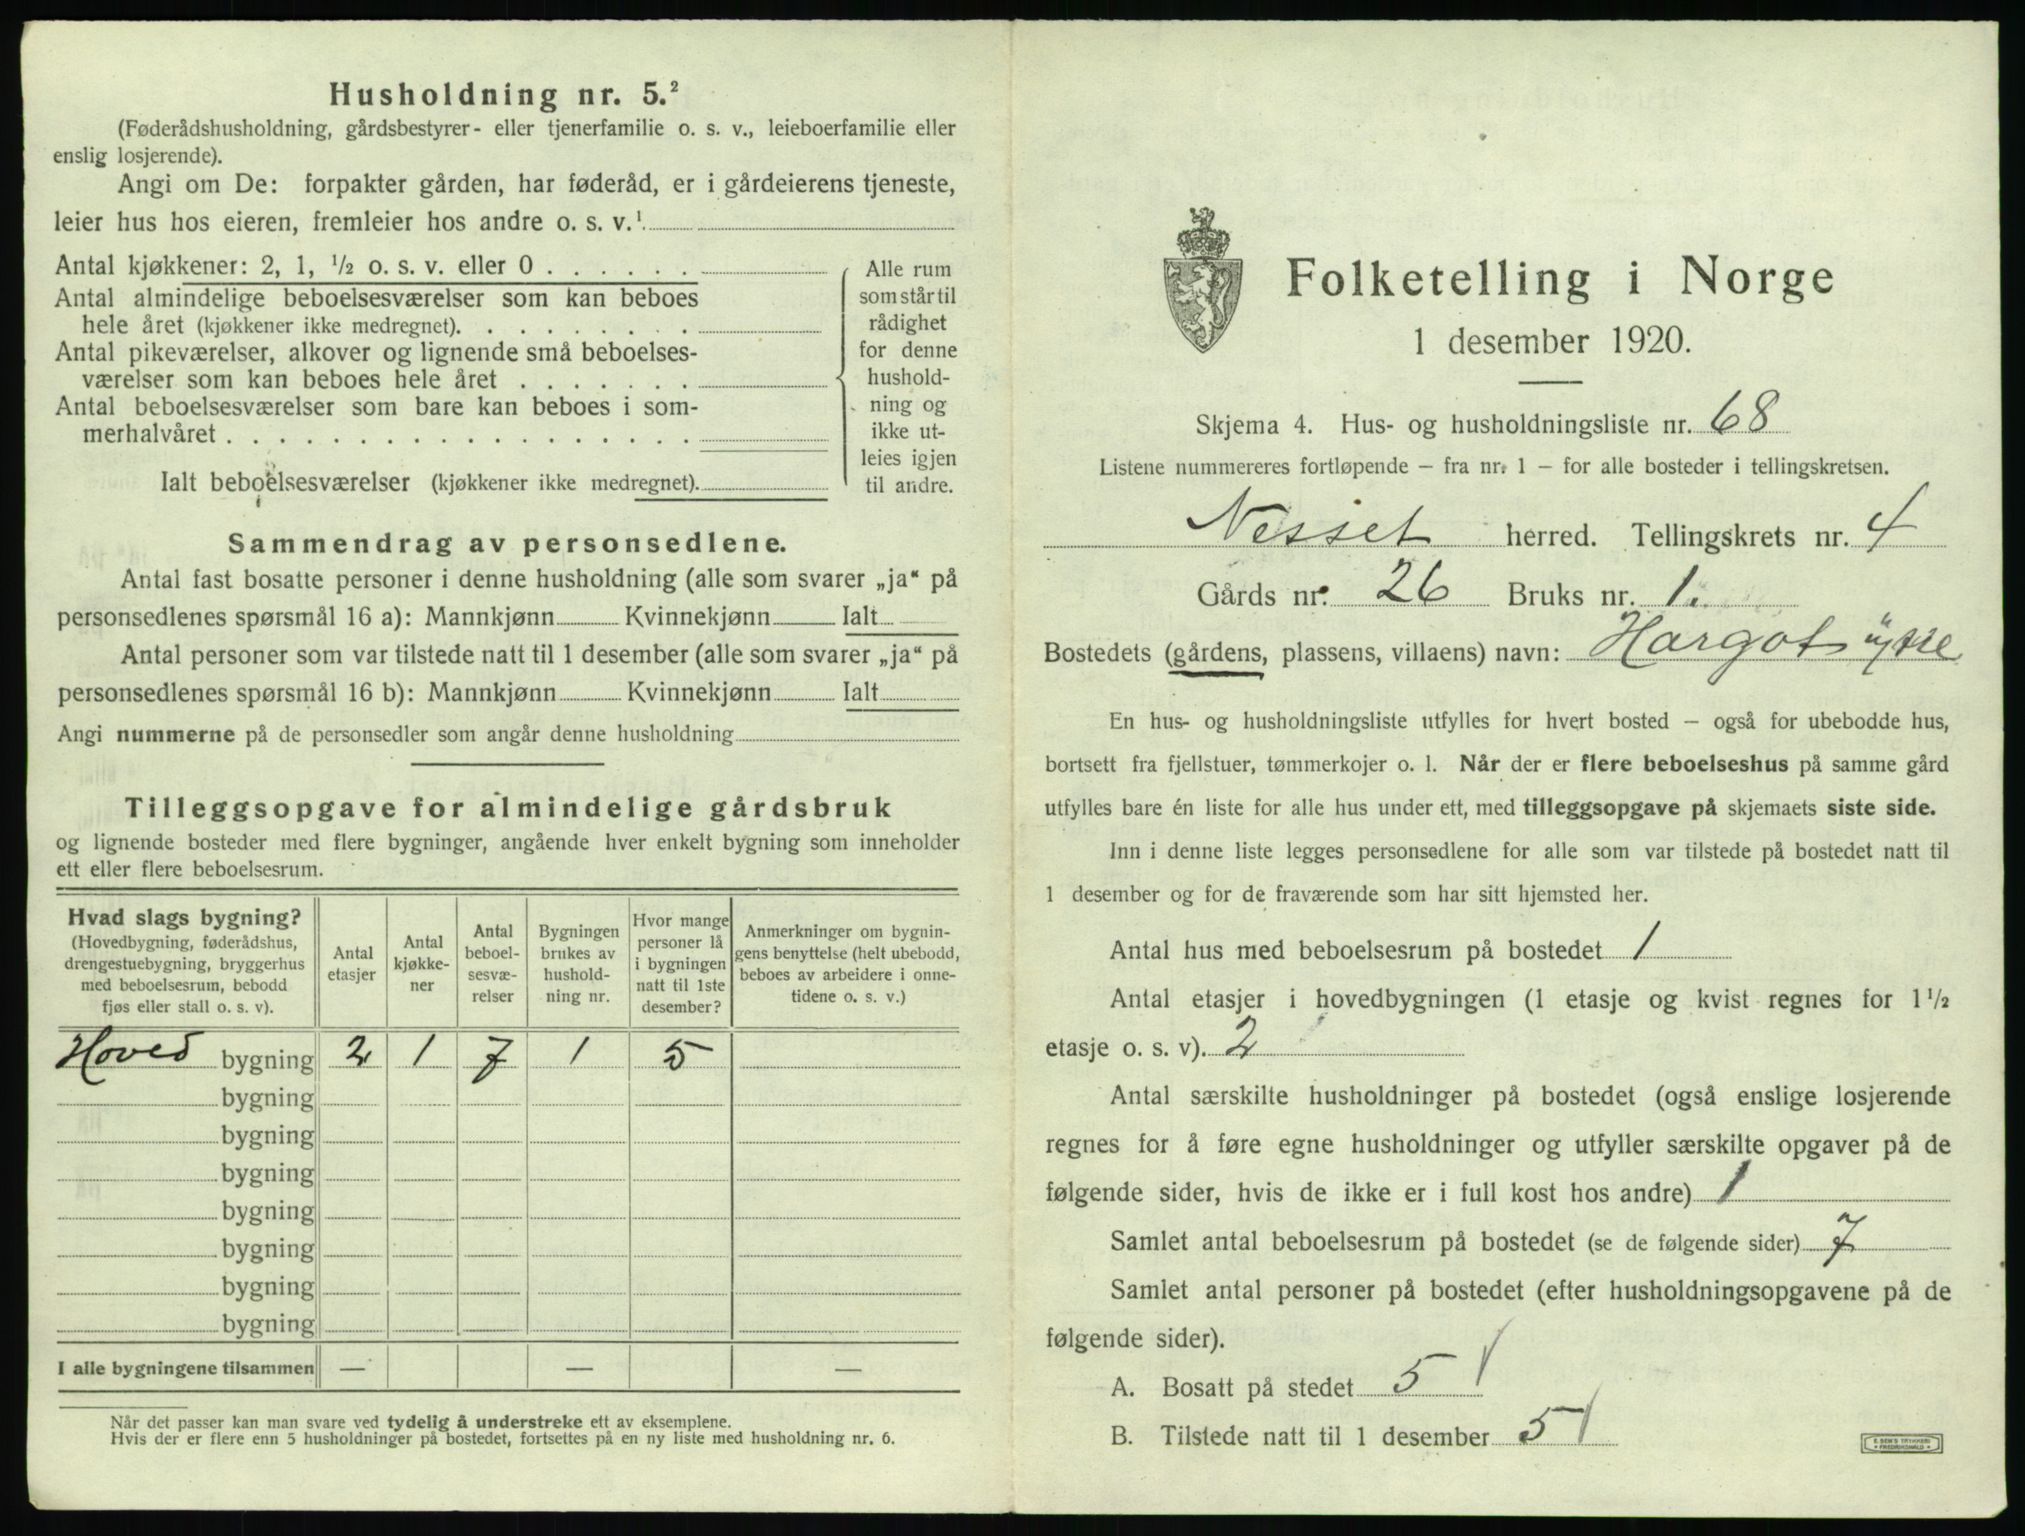 Husholdning nr. 5.²
(Føderådshusholdning, gårdsbestyrer- eller tjenerfamilie o. s. v., leieboerfamilie eller
enslig losjerende).
Angi om De: forpakter gården, har føderåd, er i gårdeierens tjeneste,
leier hus hos eieren, fremleier hos andre o. s. v.¹
Antal kjøkkener: 2, 1, ½ o. s. v. eller 0 . . . . . .
Antal almindelige beboelsesværelser som kan beboes
hele året (kjøkkener ikke medregnet). . . . . . . . .
Antal pikeværelser, alkover og lignende små beboelses-
værelser som kan beboes hele året . . . . . . .
Antal beboelsesværelser som bare kan beboes i som-
merhalvåret . . . . . . . . . . . . . . . . . .
Ialt beboelsesværelser (kjøkkener ikke medregnet).
Alle rum
som står til
rådighet
for denne
hushold-
ning og
ikke ut-
leies igjen
til andre.
Sammendrag av personsedlene.
Antal fast bosatte personer i denne husholdning (alle som svarer „ja“ på
personsedlenes spørsmål 16 a): Mannkjønn Kvinnekjønn Ialt
Antal personer som var tilstede natt til 1 desember (alle som svarer „ja“ på
personsedlenes spørsmål 16 b): Mannkjønn Kvinnekjønn Ialt
Angi nummerne på de personsedler som angår denne husholdning
Tilleggsopgave for almindelige gårdsbruk
og lignende bosteder med flere bygninger, angående hver enkelt bygning som inneholder
ett eller flere beboelsesrum.
Hvad slags bygning?
(Hovedbygning, føderådshus,
drengestuebygning, bryggerhus
med beboelsesrum, bebodd
fjøs eller stall o. s. v).
Antal
etasjer
Antal
kjøkke-
ner
Antal
beboel-
sesvæ-
relser
Bygningen
brukes av
hushold-
ning nr.
Hvor mange
personer lå
i bygningen
natt til 1ste
desember?
Anmerkninger om bygnin-
gens benyttelse (helt ubebodd,
beboes av arbeidere i onne-
tidene o. s. v.)
Hoved bygning 2 1 7 1 5
bygning
bygning
bygning
bygning
bygning
bygning
bygning
I alle bygningene tilsammen — — —
Når det passer kan man svare ved tydelig å understreke ett av eksemplene.
Hvis der er flere enn 5 husholdninger på bostedet, fortsettes på en ny liste med husholdning nr. 6.
Folketelling i Norge
1 desember 1920.
Skjema 4. Hus- og husholdningsliste nr. 68
Listene nummereres fortløpende – fra nr. 1 – for alle bosteder i tellingskretsen.
Nesset herred. Tellingskrets nr. 4
Gårds nr. 26 Bruks nr. 1.
Bostedets (gårdens, plassens, villaens) navn: Hargot ytre
En hus- og husholdningsliste utfylles for hvert bosted – også for ubebodde hus,
bortsett fra fjellstuer, tømmerkojer o. l. Når der er flere beboelseshus på samme gård
utfylles bare én liste for alle hus under ett, med tilleggsopgave på skjemaets siste side.
Inn i denne liste legges personsedlene for alle som var tilstede på bostedet natt til
1 desember og for de fraværende som har sitt hjemsted her.
Antal hus med beboelsesrum på bostedet 1
Antal etasjer i hovedbygningen (1 etasje og kvist regnes for 1½
etasje o. s. v). 2
Antal særskilte husholdninger på bostedet (også enslige losjerende
regnes for å føre egne husholdninger og utfyller særskilte opgaver på de
følgende sider, hvis de ikke er i full kost hos andre) 1
Samlet antal beboelsesrum på bostedet (se de følgende sider) 7
Samlet antal personer på bostedet (efter husholdningsopgavene på de
følgende sider).
A. Bosatt på stedet 5
B. Tilstede natt til 1 desember 5
E. SEM'S TRYKKERI
• FREDRIKSHALD •